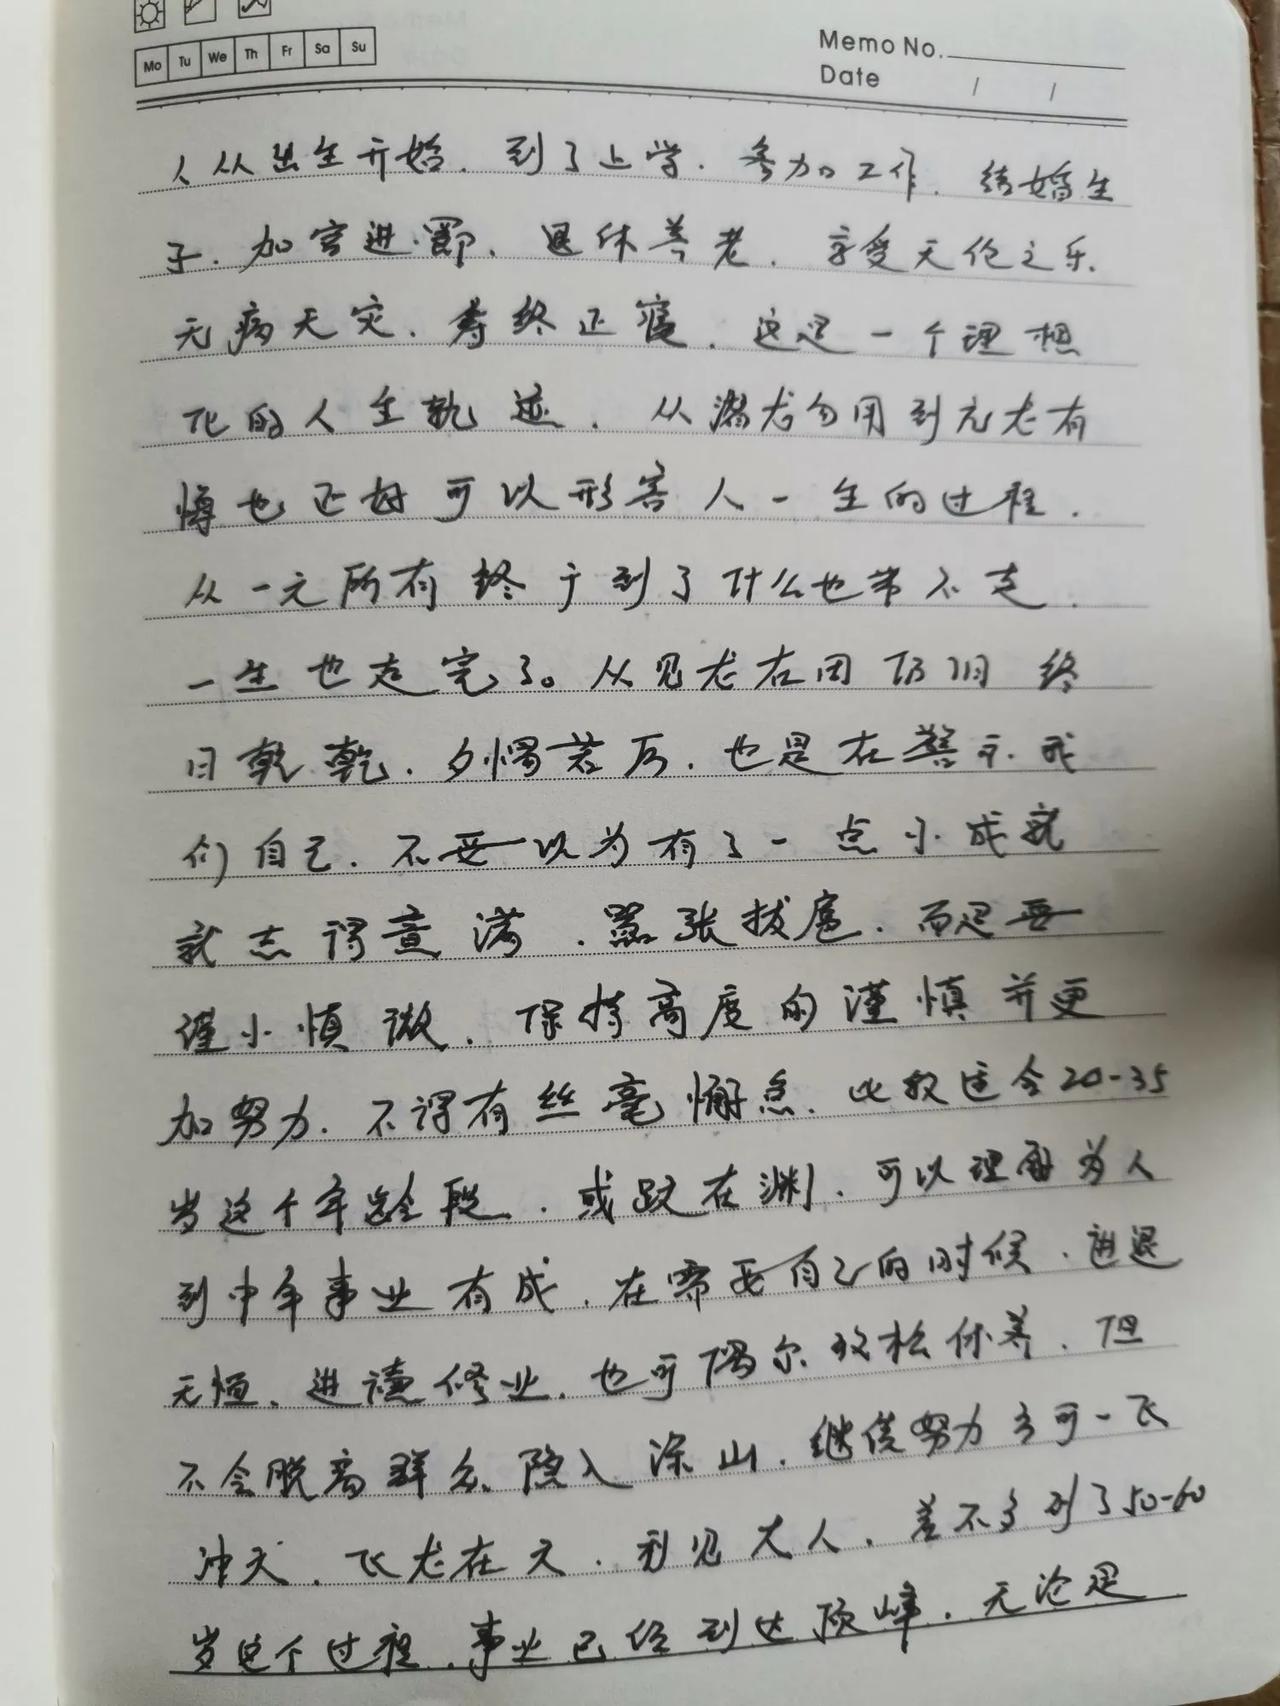 Mo Tu We Th Fr Sa Su
Memo No.
Date / /
人从出生开始、到了上学、参加工作、结婚生
子、加官进爵、退休养老、享受天伦之乐、
无病无灾、寿终正寝、这是一个理想
化的人生轨迹、从潜龙勿用到亢龙有
悔也正好可以形容人一生的过程、
从一无所有终于到了什么也带不走、
一生也走完了。从见龙在田 终
日乾乾、夕惕若厉、也是在警示我
们自己、不要以为有了一点小成就
就志得意满、嚣张拔扈、而是要
谨小慎微、保持高度的谨慎并更
加努力、不得有丝毫懈怠、比较适合20-35
岁这个年龄段、或跃在渊、可以理解为人
到中年事业有成、在需要自己的时候、进退
无恒、进德修业、也可偶尔放松休养、但
不会脱离群众隐入深山、继续努力方可一飞
冲天、飞龙在天、利见大人、差不多到了50-60
岁这个过程、事业已经到达顶峰、无论是